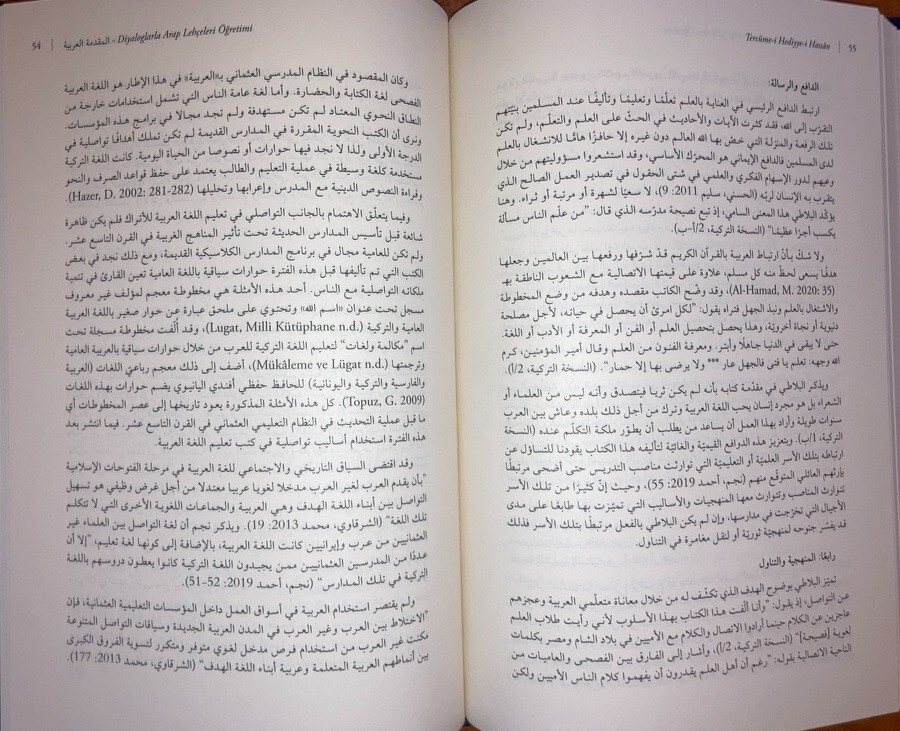 54 | المقدمة العربية - Diyaloglarla Arap Lehçeleri Öğretimi
وكان المقصود في النظام المدرسي العثماني بـ«العربية» في هذا الإطار هو اللغة العربية
الفصحى لغة الكتابة والحضارة. وأما لغة عامة الناس التي تشمل استخدامات خارجة عن
النطاق النحوي المعتاد لم تكن مستهدفة ولم تجد مجالا في برامج هذه المؤسسات.
ونرى أن الكتب النحوية المقررة في المدارس القديمة لم تكن تملك أهدافًا تواصلية في
الدرجة الأولى ولذا لا نجد فيها حوارات أو نصوصا من الحياة اليومية. كانت اللغة التركية
مستخدمة كلغة وسيطة في عملية التعليم والطالب يعتمد على حفظ قواعد الصرف والنحو
وقراءة النصوص الدينية مع المدرس وإعرابها وتحليلها (Hazer, D. 2002: 281-282).
وفيما يتعلّق الاهتمام بالجانب التواصلي في تعليم اللغة العربية للأتراك فلم يكن ظاهرة
شائعة قبل تأسيس المدارس الحديثة تحت تأثير المناهج الغربية في القرن التاسع عشر.
ولم تكن للعامية مجال في برنامج المدارس الكلاسيكية القديمة، ومع ذلك نجد في بعض
الكتب التي تم تأليفها قبل هذه الفترة حوارات سياقية باللغة العامية تعين القارئ في تنمية
ملكاته التواصلية مع الناس. أحد هذه الأمثلة هي مخطوطة معجم لمؤلف غير معروف
مسجل تحت عنوان «اسم الله» وتحتوي على ملحق عبارة عن حوار صغير باللغة العربية
العامية والتركية (Lugat, Milli Kütüphane n.d.)، وقد ألّفت مخطوطة مسجلة تحت
اسم "مكالمة ولغات" لتعليم اللغة التركية للعرب من خلال حوارات سياقية بالعربية العامية
وترجمتها (Mükâleme ve Lügat n.d.)، أضف إلى ذلك معجم رباعيّ اللغات (العربية
والفارسية والتركية واليونانية) للحافظ حفظي أفندي اليانيوي يضم حوارات بهذه اللغات
(Topuz, G. 2009). كل هذه الأمثلة المذكورة يعود تاريخها إلى عصر المخطوطات أي
ما قبل عملية التحديث في النظام التعليمي العثماني في القرن التاسع عشر. فيما انتشر بعد
هذه الفترة استخدام أساليب تواصلية في كتب تعليم اللغة العربية.
وقد اقتضى السياق التاريخي والاجتماعي للغة العربية في مرحلة الفتوحات الإسلامية
"بأن يقدم العرب لغير العرب مدخلا لغويا عربيا معتدلا من أجل غرض وظيفي هو تسهيل
التواصل بين أبناء اللغة الهدف وهي العربية والجماعات اللغوية الأخرى التي لا تتكلم
تلك اللغة" (الشرقاوي، محمد 2013: 19). ويذكر نجم أن لغة التواصل بين العلماء غير
العثمانيين من عرب وإيرانيين كانت اللغة العربية، بالإضافة إلى كونها لغة تعليم، "إلا أن
عددًا من المدرسين العثمانيين ممن يجيدون اللغة التركية كانوا يعطون دروسهم باللغة
التركية في تلك المدارس" (نجم، أحمد 2019: 52-51).
ولم يقتصر استخدام العربية في أسواق العمل داخل المؤسسات التعليمية العثمانية، فإن
"الاختلاط بين العرب وغير العرب في المدن العربية الجديدة وسياقات التواصل المتنوعة
مكنت غير العرب من استخدام فرص مدخل لغوي متوفر ومتكرر لتسوية الفروق الكبرى
بين أنماطهم العربية المتعلمة وعربية أبناء اللغة الهدف" (الشرقاوي، محمد 2013: 177).
Tercüme-i Hediyye-i Hassân | 55
الدافع والرسالة:
ارتبط الدافع الرئيسي في العناية بالعلم تعلّمًا وتعليمًا وتأليفًا عند المسلمين بنيّتهم
التقرّب إلى الله، فقد كثرت الآيات والأحاديث في الحثّ على العلم والتعلّم، ولم تكن
تلك الرفعة والمنزلة التي خصّ بها الله العالم دون غيره إلا حافزًا هامًّا للانشغال بالعلم
لدى المسلمين فالدافع الإيماني هو المحرّك الأساسي، وقد استشعروا مسؤوليتهم من خلال
وعيهم لدور الإسهام الفكري والعلمي في شتى الحقول في تصدير العمل الصالح الذي
يتقرب به الإنسان لربّه (الحسني، سليم 2011: 9)، لا سعيًا لشهرة أو مرتبة أو ثراء. وهنا
يؤكّد البلاطي هذا المعنى السامي، إذ تبع نصيحة مدرّسه الذي قال: "من علّم الناس مسألة
يكسب أجرًا عظيمًا" (النسخة التركية، 2/أ-ب).
ولا شكّ بأنّ ارتباط العربية بالقرآن الكريم قدّ شرّفها ورفعها بين العالمين وجعلها
هدفًا يسعى لحظّ منه كل مسلم، علاوة على قيمتها الاتصالية مع الشعوب الناطقة بها
(Al-Hamad, M. 2020: 35)، وقد وضّح الكاتب مقصده وهدفه من وضع المخطوطة
والاشتغال بالعلم ونبذ الجهل فتراه يقول: "لكل امرئ أن يحصل في حياته، لأجل مصلحة
دنيوية أو نجاة أخرويّة، وهذا يحصل بتحصيل العلم أو الفن أو المعرفة أو الأدب أو اللغة.
حتى لا يبقى في الدنيا جاهلًا وأبتر. ومعرفة الفنون من العلم وقال أمير المؤمنين، كرم
الله وجهه: تعلم يا فتى فالجهل عار *** ولا يرضى بها إلا حمار". (النسخة التركية، 2/أ).
ويذكر البلاطي في مقدّمة كتابه بأنه لم يكن ثريا فيتصدق وأنه ليس من العلماء أو
الشعراء بل هو مجرد إنسان يحب اللغة العربية وترك من أجل ذلك بلده وعاش بين العرب
سنوات طويلة وأراد بهذا العمل أن يساعد من يطلب أن يطوّر ملكة التكلّم عنده (النسخة
التركية، 1/ب). وبتعزيز هذه الدوافع القيميّة والغائيّة لتأليفه هذا الكتاب يقودنا للتساؤل عن
ارتباطه بتلك الأسر العلميّة أو التعليميّة التي توارثت مناصب التدريس حتى أضحى مرتبطًا
بإرثهم العائلي المتوقّع منهم (نجم، أحمد 2019: 55)، وحيث إنّ كثيرًا من تلك الأسر
تتوارث المناصب وتتوارث معها المنهجيات والأساليب التي تميّزت بها طابعًا على مدى
الأجيال التي تخرّجت في مدارسها، وإن لم يكن البلاطي بالفعل مرتبطًا بتلك الأسر فذلك
قد يفسّر جنوحه لمنهجيّة ثوريّة أو لنقل مغامرة في التناول.
رابعًا: المنهجية والتناول
تميّز البلاطي بوضوح الهدف الذي تكشّف له من خلال معاناة متعلّمي العربية وعجزهم
عن التواصل، إذ يقول: "وأنا ألّفت هذا الكتاب بهذا الأسلوب لأني رأيت طلاب العلم
عاجزين عن الكلام حينما أرادوا الاتصال والكلام مع الأميين في بلاد الشام ومصر بكلمات
لغوية [فصيحة]" (النسخة التركية، 2/أ)، وأشار إلى الفارق بين الفصحى والعاميات من
الناحية الاتصالية بقوله: "رغم أن أهل العلم يقدرون أن يفهموا كلام الناس الأميين ولكن